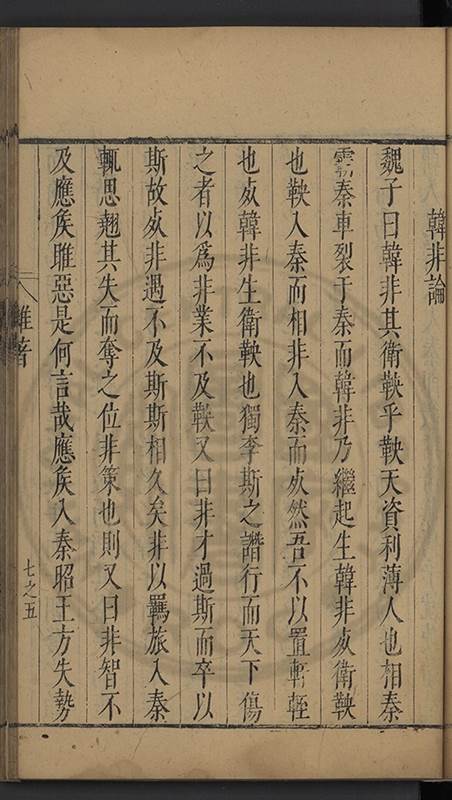 韓非論
魏子曰韓非其衛鞅乎鞅天資刻薄人也相秦
霸秦車裂于秦而韓非乃繼起生韓非死衛鞅
也鞅入秦而相非入秦而死然吾不以置軒輊
也死韓非生衛鞅也獨李斯之譖行而天下傷
之者以爲非業不及鞅又曰非才過斯而卒以
斯故死非遇不及斯斯相久矣非以羇旅入秦
輒思翹其失而奪之位非策也則又曰非智不
及應矦睢惡是何言哉應矦入秦昭王方失勢
雜著
七之五